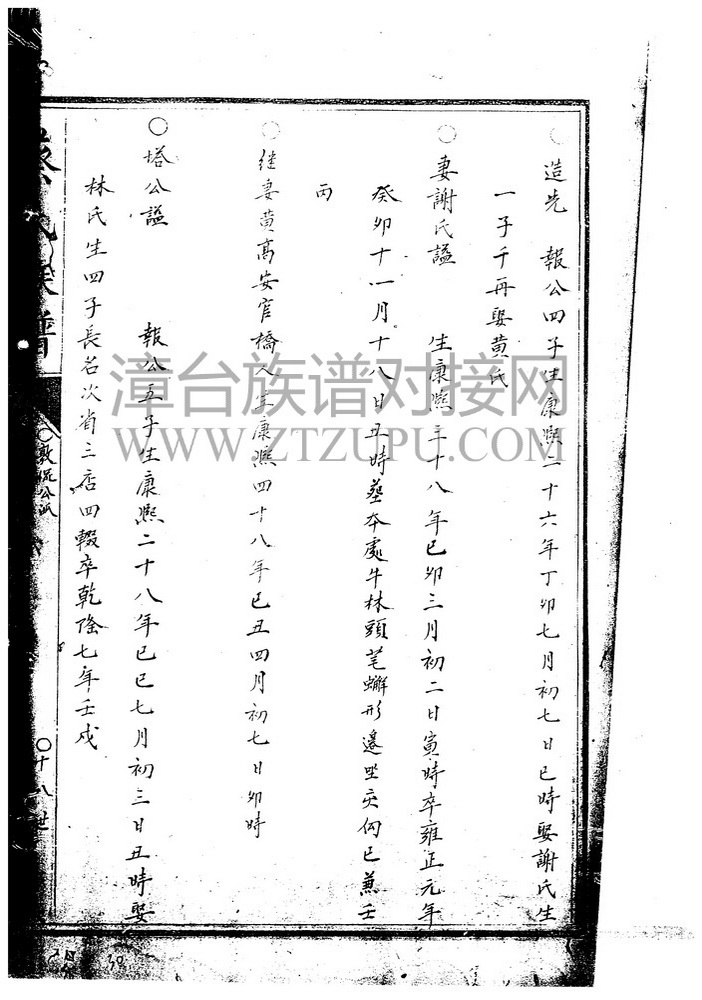 ○造先　報公四子生康熙二十六年丁卯七月初七日巳時娶謝氏生
一子千再娶黄氏
○妻謝氏謚　生康熙三十八年己卯三月初二日寅時卒雍正元年
癸卯十一月十八日丑時塟本處牛林頭毛蠏形邊坐亥向巳兼壬
丙
○继妻黄高安官橋人生康熙四十八年己丑四月初七日卯時
○塔公謚　報公五子生康熙二十八年己巳七月初三日丑時娶
林氏生四子長名次省三店四輟卒乾隆七年壬戍
蔡氏族譜
○敦
公派
○十八世
30
漳台族谱对接网
WWW.ZTZUPU.COM